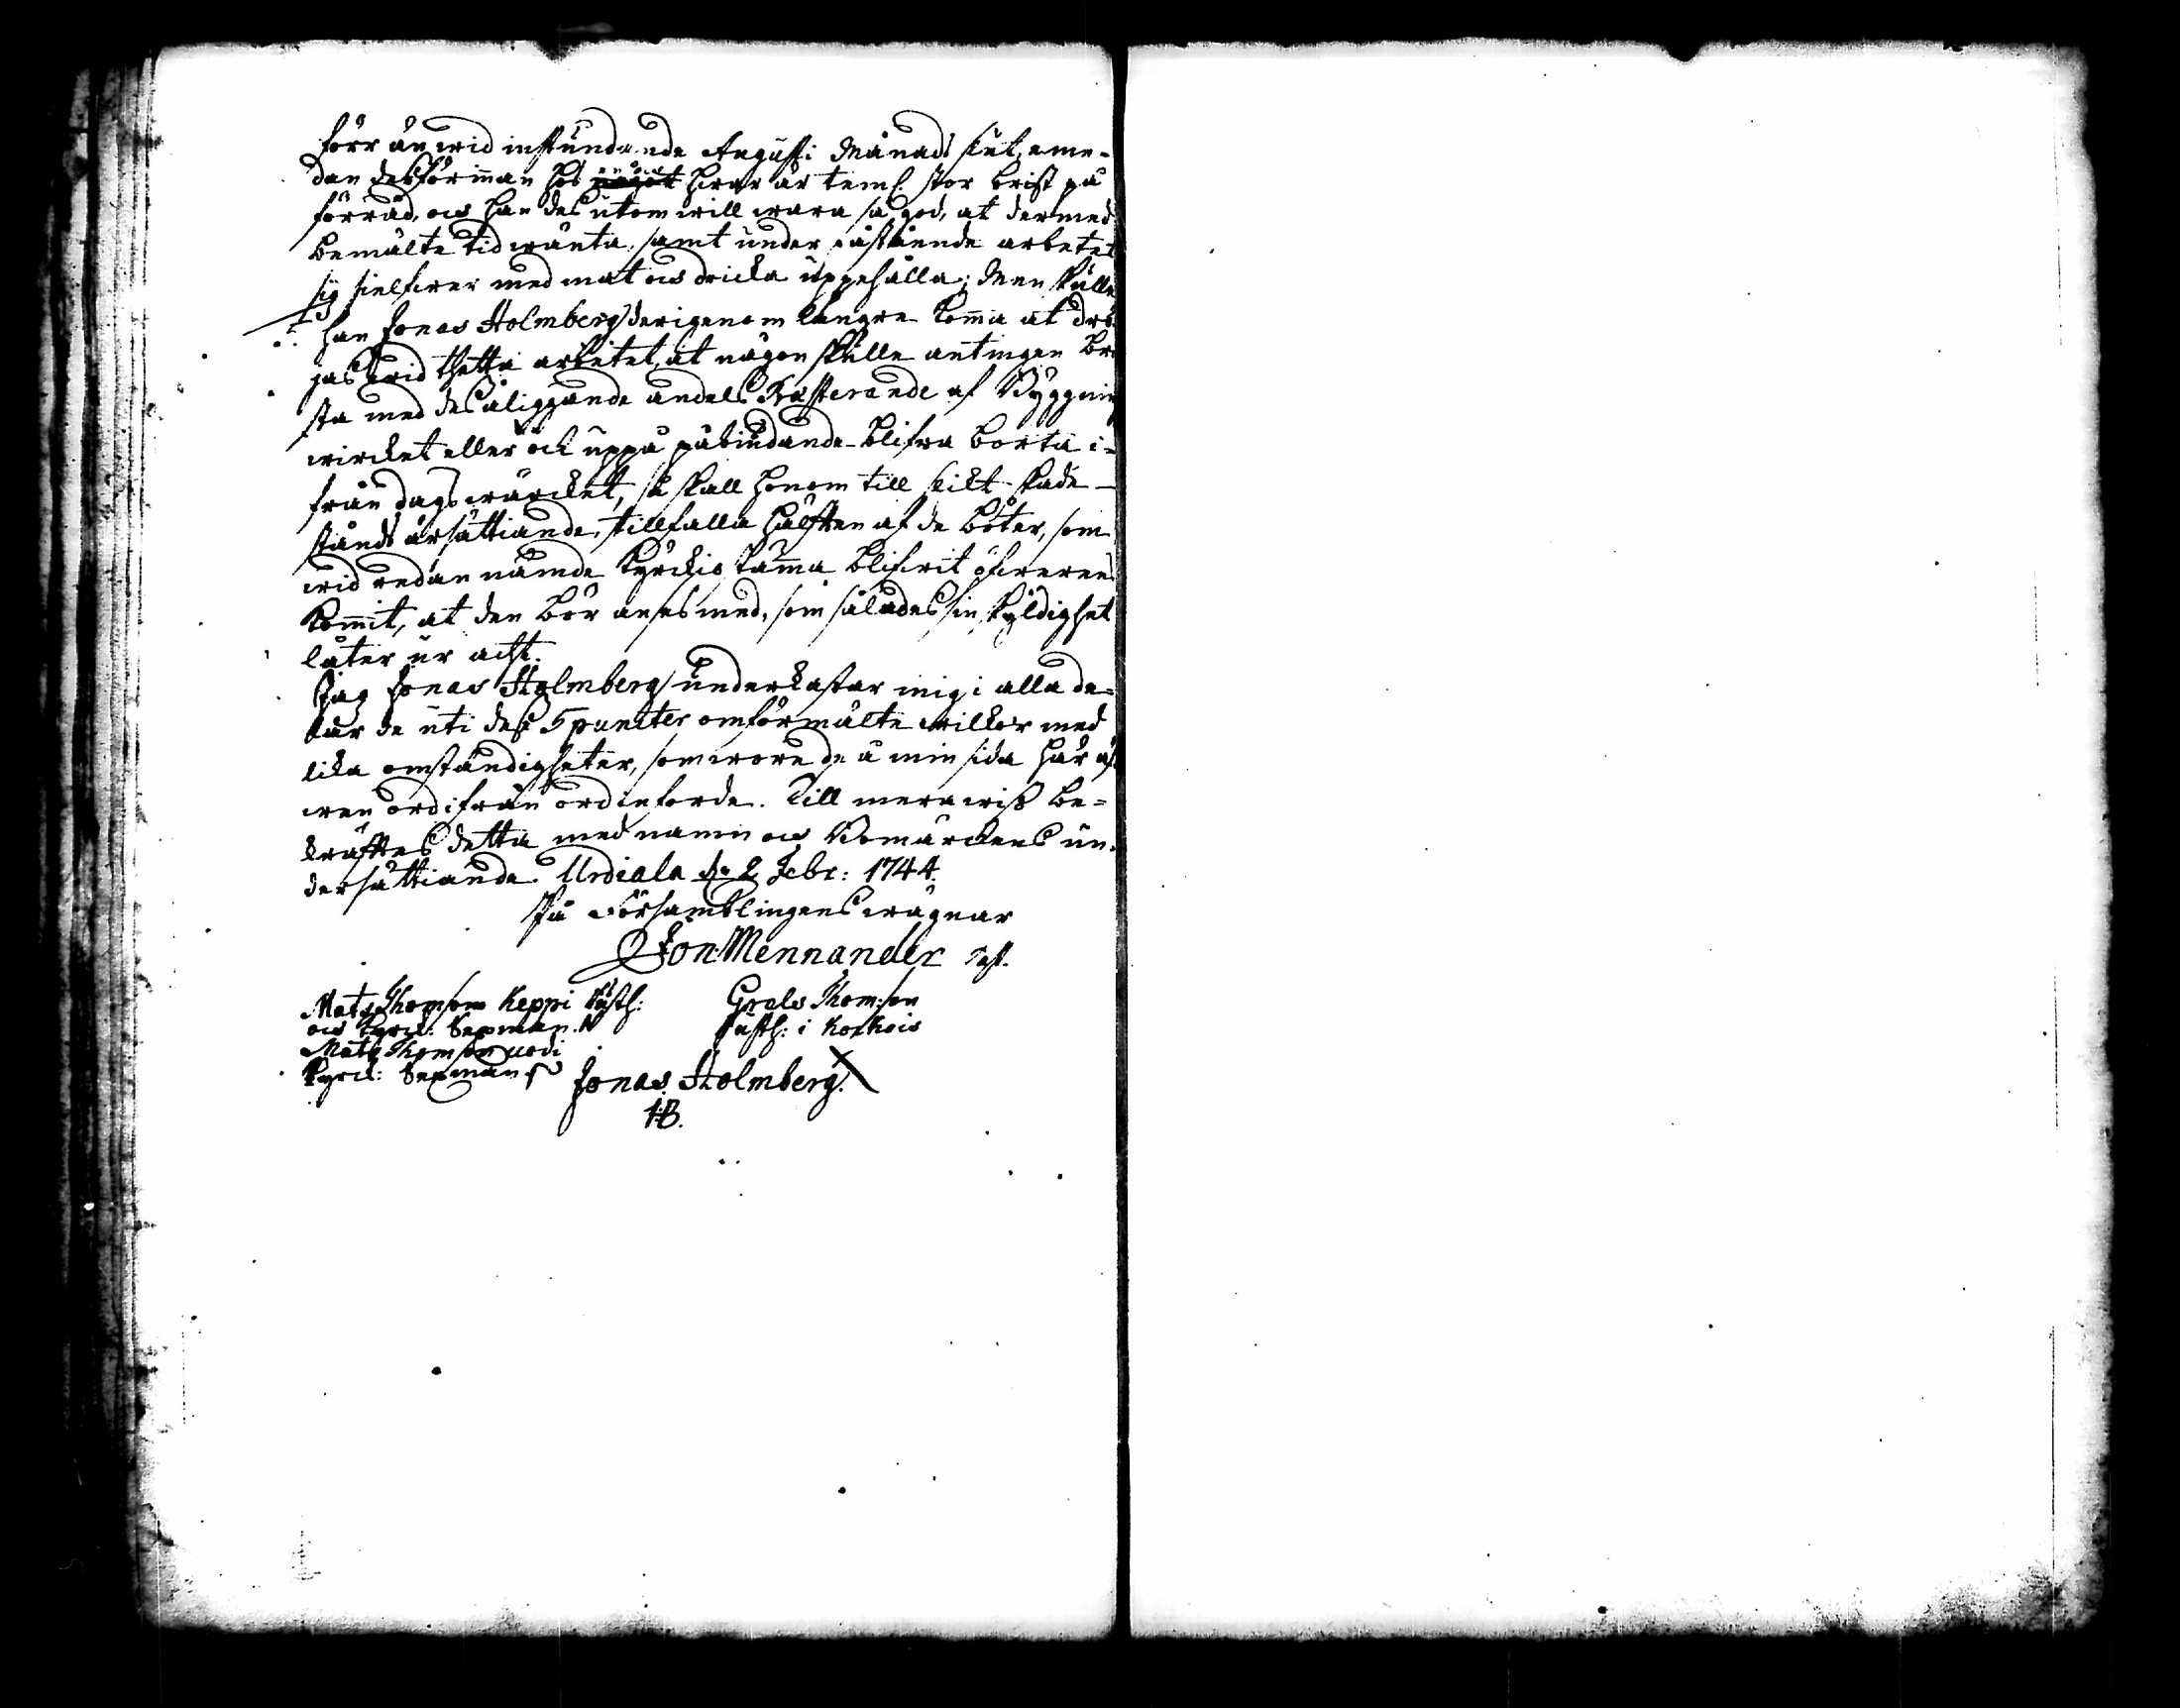 förr än wid instundande Augusti Månads slut, eme-
dan desförinnan hos hwar är teml. stor brist på
förråd, och han des utom will wara så god, at dermed
bemälte tid wänta, samt under påstående arbetet
sig sielfwer med mat och dricka uppehålla; Men skulle
han Jonas Holmberg derigenom längre komma at drö-
jas wid thetta arbetet, at någon skulle antingen bri
sta med des åliggande andels af Byggnin
wircket eller ock uppå påbiudande blifwa borta i-
från dagswärcket, så skall honom till slikt skade-
stånds ärsättiande, tillfalla hälften af de böter, som
wid redan nämde Kyrckiostämma blifwit öfwerens
kommit, at den bör anses med, som således sin skyldighet
låter ur acht.
Jag Jonas Holmberg underkastar mig i alla de-
lar de uti dess 5 puncter omförmälte willkor med
lika omständigheter, som wore de å min sida här äf
wen ord ifrån ord införde. Till mera wiss be-
kräftes detta med namn och Bomärckens un-
dersättiande. Urdiala d. 2 Febr: 1744.
På Församblingens wägnar
Jon Mennander Past.
Mats Thomson Keppi Rusth:
och Kyrck: Sexman.
Grels Thomson
Rusth: i Korkois
Mats Thomson uodi
Kyrck: Sexman
Jonas Holmberg.
IHB.